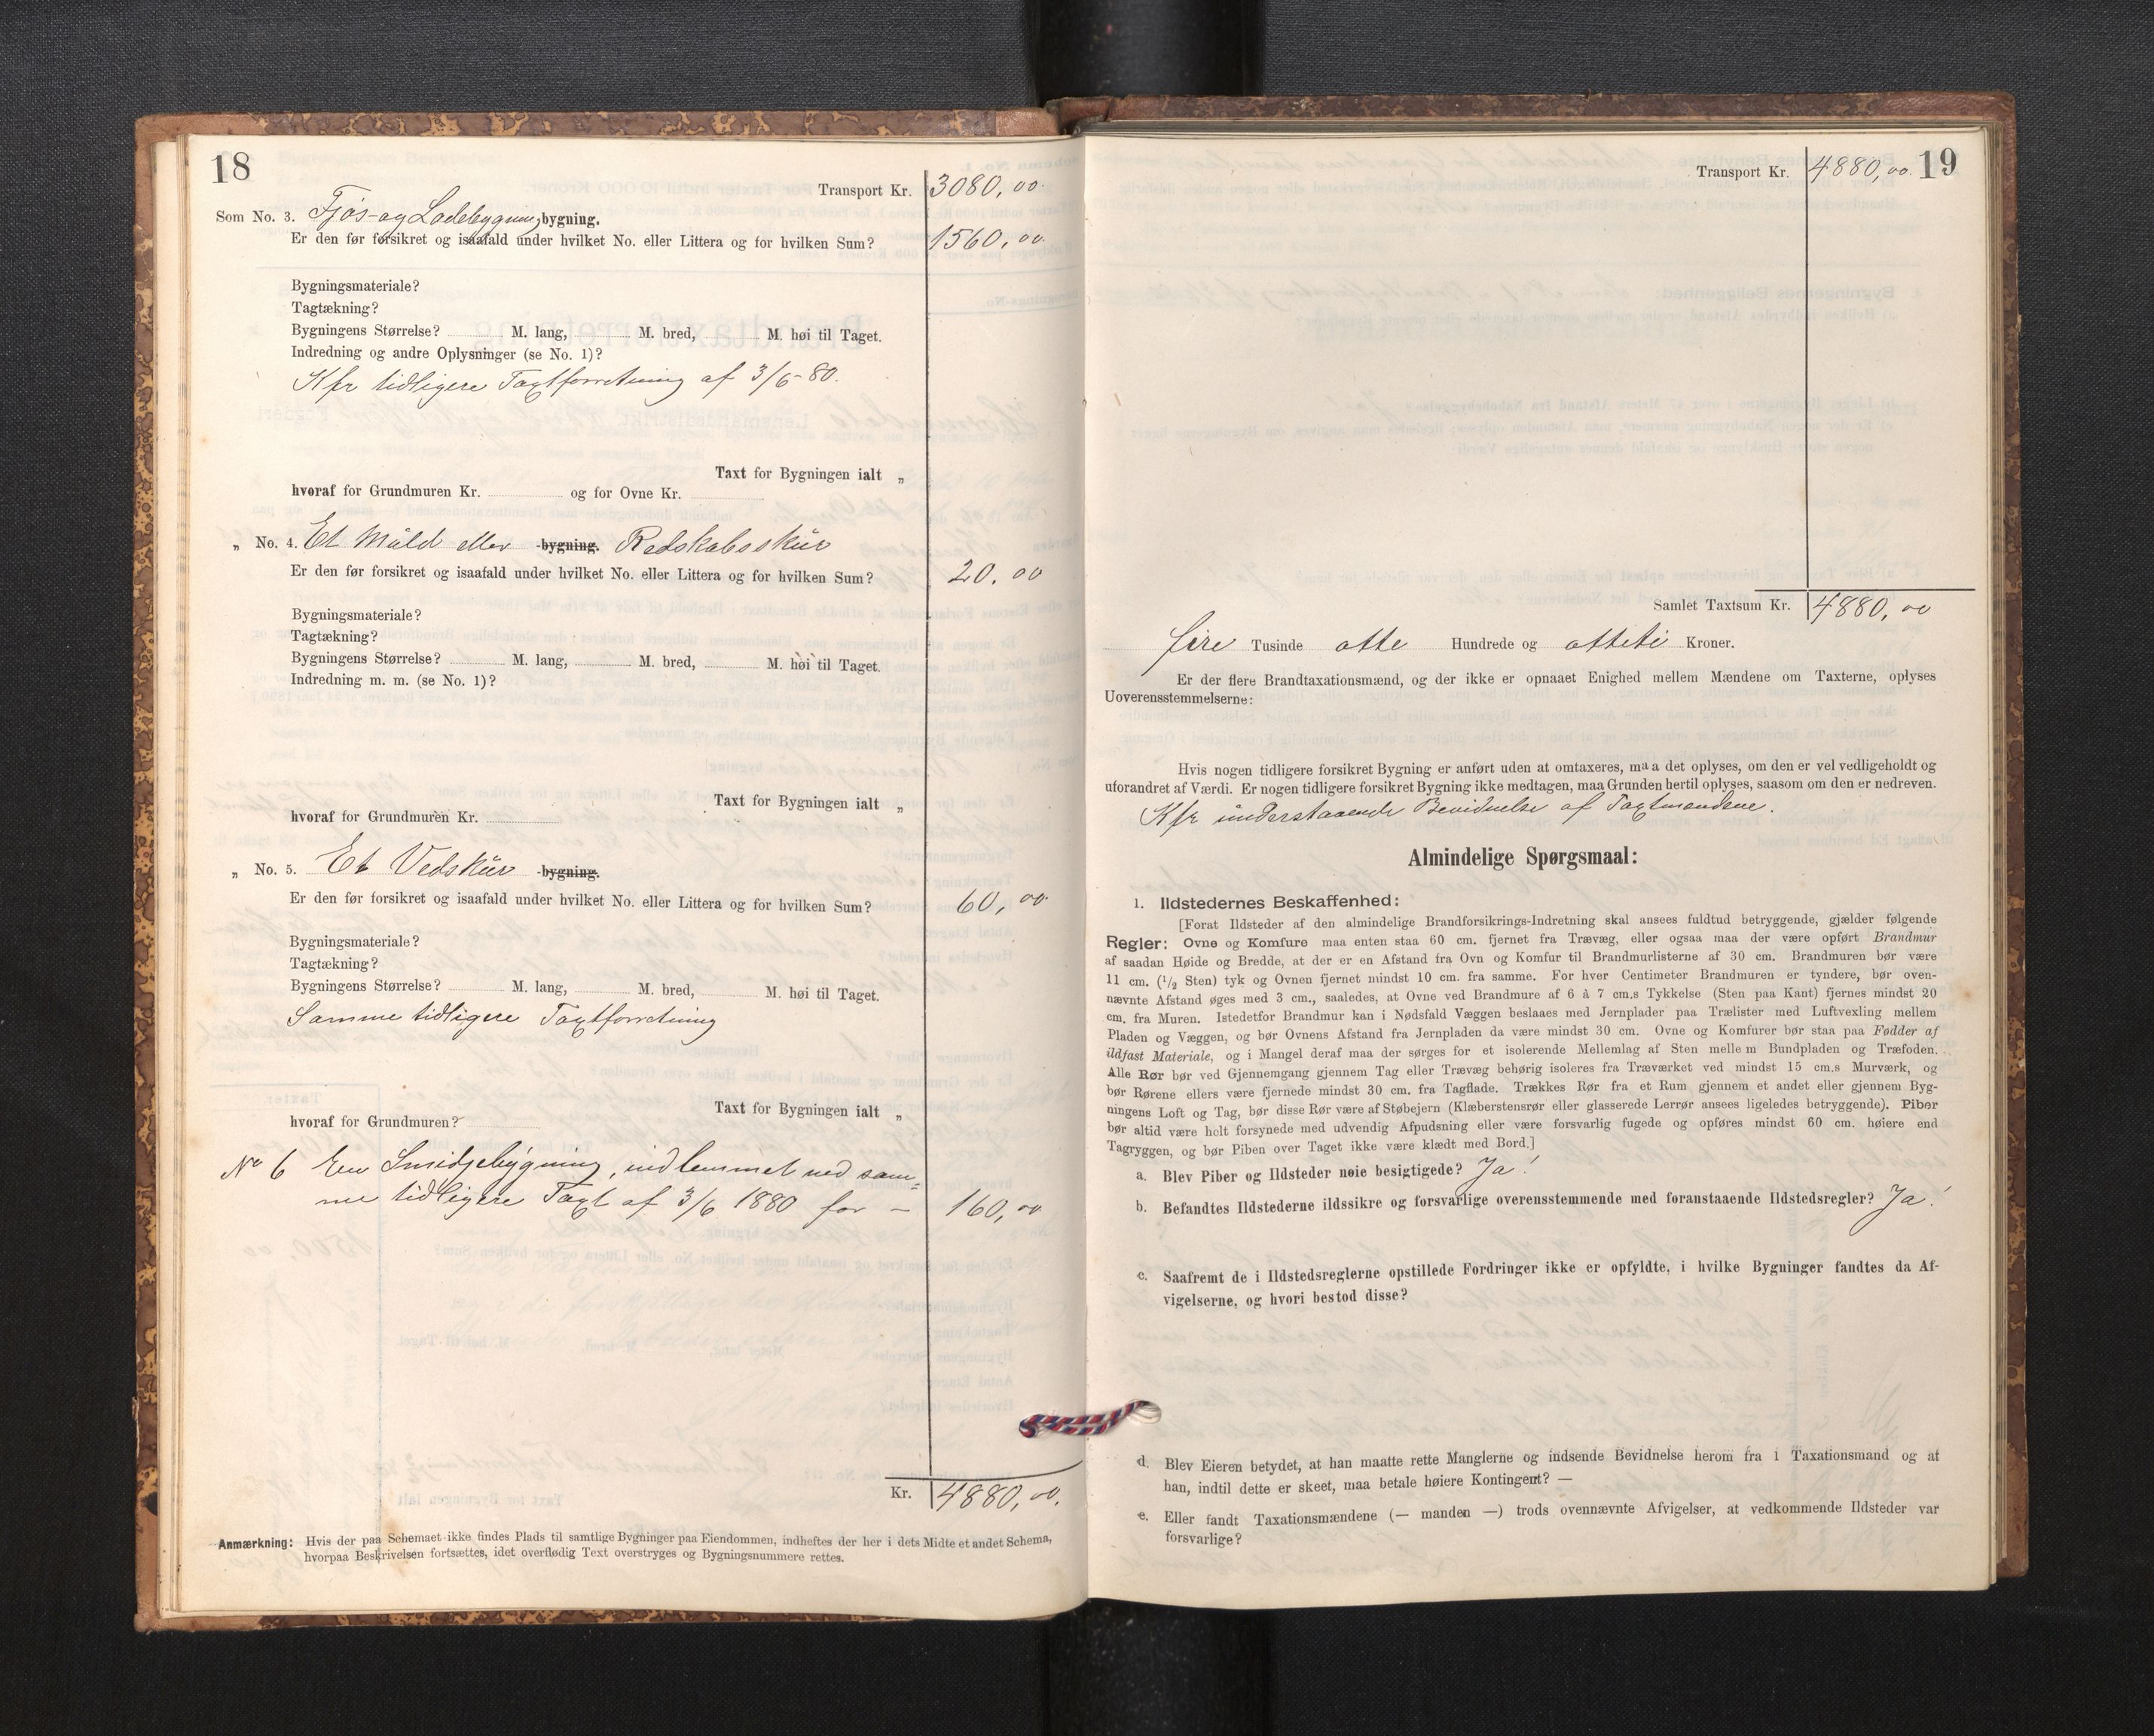 18
Transport Kr. 3080,00.
Som No. 3. Fjøs- og Ladebygnings bygning.
Er den før forsikret og isaafald under hvilket No. eller Littera og for hvilken Sum? 1560,00.
Bygningsmateriale?
Tagtækning?
Bygningens Størrelse? M. lang, M. bred, M. høi til Taget.
Indredning og andre Oplysninger (se No. 1)?
Kfr tidligere Taxtforretning af 3/6-80.
Taxt for Bygningen ialt „
hvoraf for Grundmuren Kr. og for Ovne Kr.
„ No. 4. Et Måld eller bygning. Redskabsskür
Er den før forsikret og isaafald under hvilket No. eller Littera og for hvilken Sum? 20,00
Bygningsmateriale?
Tagtækning?
Bygningens Størrelse? M. lang, M. bred, M. høi til Taget.
Indredning m. m. (se No. 1)?
Taxt for Bygningen ialt „
hvoraf for Grundmuren Kr.
„ No. 5. Et Vedskür bygning.
Er den før forsikret og isaafald under hvilket No. eller Littera og for hvilken Sum? 60,00.
Bygningsmateriale?
Tagtækning?
Bygningens Størrelse? M. lang, M. bred, M. høi til Taget.
Samme tidligere Taxtforretning
Taxt for Bygningen ialt „
hvoraf for Grundmuren?
No 6 En Smidjebygning, indlemmet ved sam=
me tidligere Taxt af 3/6 1880 for — 160,00
Kr. 4880,00.
Anmærkning: Hvis der paa Schemaet ikke findes Plads til samtlige Bygninger paa Eiendommen, indheftes der her i dets Midte et andet Schema,
hvorpaa Beskrivelsen fortsættes, idet overflødig Text overstryges og Bygningsnummere rettes.
Transport Kr. 4880,00. 19
Samlet Taxtsum Kr. 4880,00
fire Tusinde otte Hundrede og ottiti Kroner.
Er der flere Brandtaxationsmænd, og der ikke er opnaaet Enighed mellem Mændene om Taxterne, oplyses
Uoverensstemmelserne:
Hvis nogen tidligere forsikret Bygning er anført uden at omtaxeres, maa det oplyses, om den er vel vedligeholdt og
uforandret af Værdi. Er nogen tidligere forsikret Bygning ikke medtagen, maa Grunden hertil oplyses, saasom om den er nedreven.
Kfr ünderstaaende Bevidnelse af Taxtmændene.
Almindelige Spørgsmaal:
1. Ildstedernes Beskaffenhed:
[Forat Ildsteder af den almindelige Brandforsikrings-Indretning skal ansees fuldtud betryggende, gjælder følgende
Regler: Ovne og Komfure maa enten staa 60 cm. fjernet fra Trævæg, eller ogsaa maa der være opført Brandmur
af saadan Høide og Bredde, at der er en Afstand fra Ovn og Komfur til Brandmurlisterne af 30 cm. Brandmuren bør være
11 cm. (1/2 Sten) tyk og Ovnen fjernet mindst 10 cm. fra samme. For hver Centimeter Brandmuren er tyndere, bør oven-
nævnte Afstand øges med 3 cm., saaledes, at Ovne ved Brandmure af 6 à 7 cm.s Tykkelse (Sten paa Kant) fjernes mindst 20
cm. fra Muren. Istedetfor Brandmur kan i Nødsfald Væggen beslaaes med Jernplader paa Trælister med Luftvexling mellem
Pladen og Væggen, og bør Ovnens Afstand fra Jernpladen da være mindst 30 cm. Ovne og Komfurer bør staa paa Fødder af
ildfast Materiale, og i Mangel deraf maa der sørges for et isolerende Mellemlag af Sten mellem Bundpladen og Træfoden.
Alle Rør bør ved Gjennemgang gjennem Tag eller Trævæg behørig isoleres fra Træværket ved mindst 15 cm.s Murværk, og
bør Rørene ellers være fjernede mindst 30 cm. fra Tagflade. Trækkes Rør fra et Rum gjennem et andet eller gjennem Byg-
ningens Loft og Tag, bør disse Rør være af Støbejern (Klæberstensrør eller glasserede Lerrør ansees ligeledes betryggende). Piber
bør altid være helt forsynede med udvendig Afpudsning eller være forsvarlig fugede og opføres mindst 60 cm. høiere end
Tagryggen, og bør Piben over Taget ikke være klædt med Bord.]
a. Blev Piber og Ildsteder nøie besigtigede? Ja!
b. Befandtes Ildstederne ildssikre og forsvarlige overensstemmende med foranstaaende Ildstedsregler? Ja!
c. Saafremt de i Ildstedsreglerne opstillede Fordringer ikke er opfyldte, i hvilke Bygninger fandtes da Af-
vigelserne, og hvori bestod disse?
d. Blev Eieren betydet, at han maatte rette Manglerne og indsende Bevidnelse herom fra 1 Taxationsmand og at
han, indtil dette er skeet, maa betale høiere Kontingent? —
e. Eller fandt Taxationsmændene (— manden —) trods ovennævnte Afvigelser, at vedkommende Ildsteder var
forsvarlige?